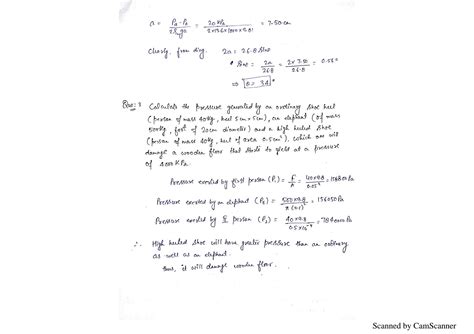 a = P2-P1 / 2ρg = 20 kPa / 2×13.6×1000×9.81 = 7.50 cm
Clearly from diag. 2a = 26.8 Sinθ
Sinθ = 2a / 26.8 = 2×7.50 / 26.8 = 0.56
⇒ θ = 34°
Ques: Calculate the pressure generated by an ordinary shoe heel
(person of mass 40kg, heel 5cm×5cm), an elephant (of mass
500kg, foot of 20cm diameter) and a high heeled shoe
(person of mass 40kg, heel of area 0.5cm²). Which one will
damage a wooden floor that starts to yield at a pressure
of 4000 KPa
Pressure exerted by first person (P1) = F/A = 40×9.8 / 0.05² =
Pressure exerted by an elephant (P2) = 500×9.8 / π(0.1)² = 156050 Pa
Pressure exerted by person (P3) = 40×9.8 / 0.5×10⁻⁴ = 7840000 Pa
∴ High heeled shoe will have greater pressure than an ordinary
as well as an elephant.
Thus, it will damage wooden floor.
Scanned by CamScanner